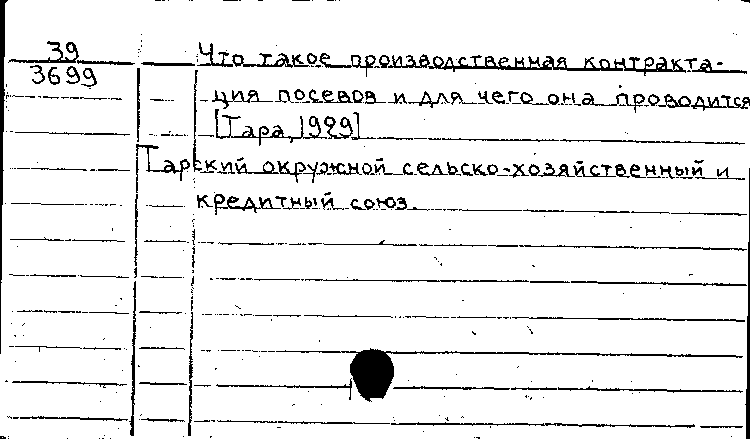 39
3699
Что такое производственная контракта-
ция посевов и для чего она проводится
[Тара, 1929]
Тарский окружной сельско-хозяйственный и
кредитный союз.